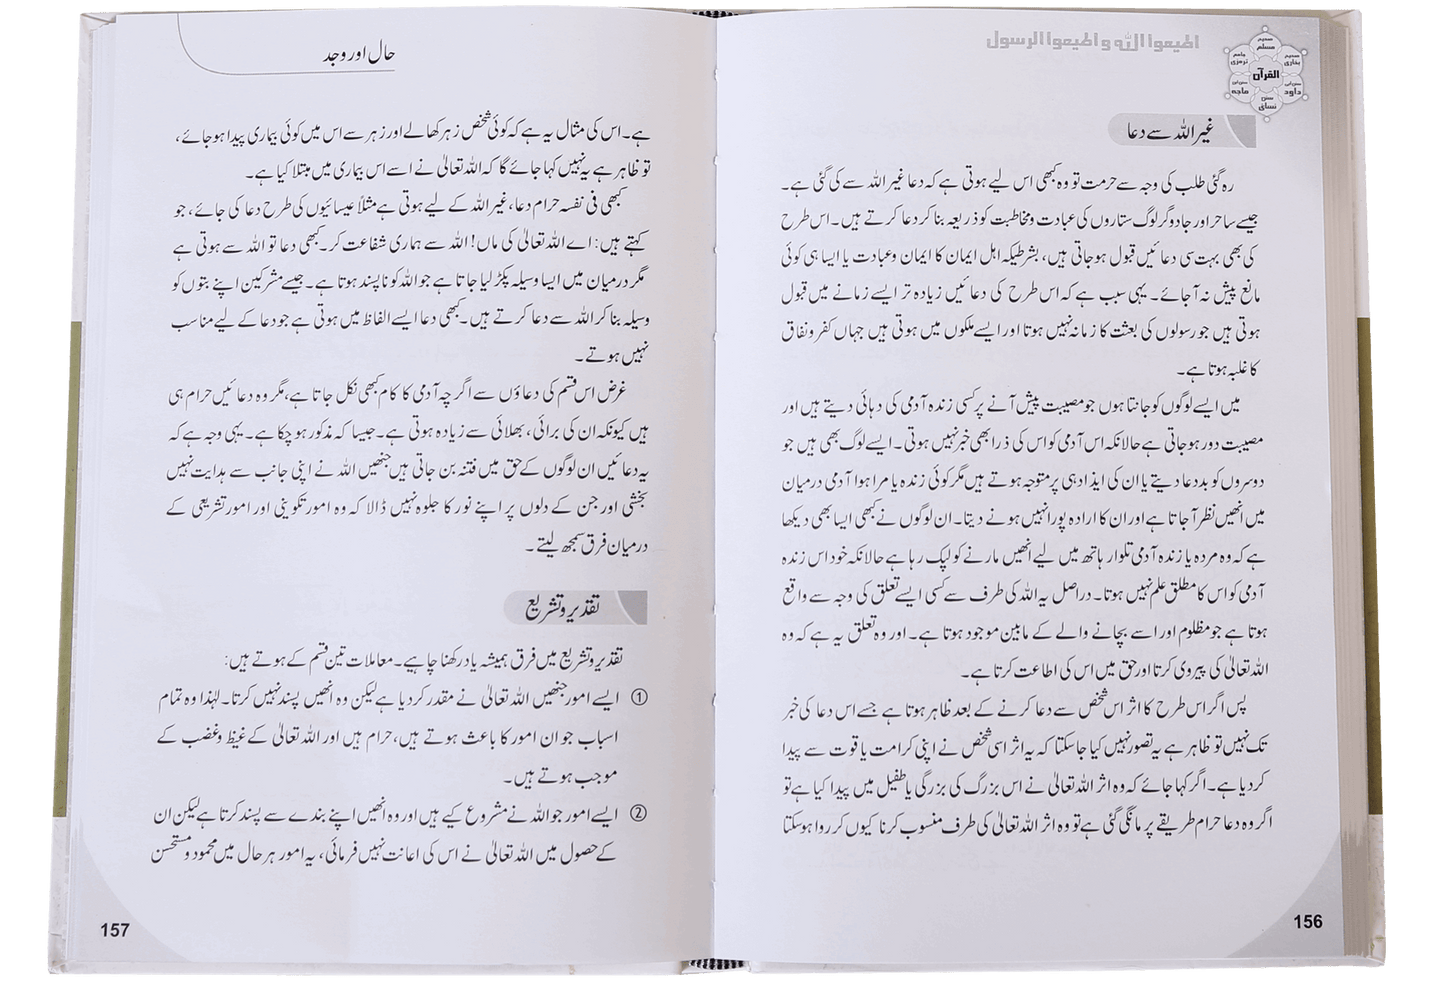 اطیعوا اللہ و اطیعوا الرسول
صحیح مسلم
جامع ترمذی
صحیح بخاری
القرآن
سنن ابن ماجه
سنن ابی داود
سنن نسائی
غیر اللہ سے دعا
رہ گئی طلب کی وجہ سے حرمت تو وہ کبھی اس لیے ہوتی ہے کہ دعا غیر اللہ سے کی گئی ہے۔
جیسے ساحر اور جادوگر لوگ ستاروں کی عبادت و مخاطبت کو ذریعہ بنا کر دعا کرتے ہیں۔ اس طرح
کی بھی بہت سی دعائیں قبول ہو جاتی ہیں، بشرطیکہ اہل ایمان کا ایمان و عبادت یا ایسا ہی کوئی
مانع پیش نہ آ جائے۔ یہی سبب ہے کہ اس طرح کی دعائیں زیادہ تر ایسے زمانے میں قبول
ہوتی ہیں جو رسولوں کی بعثت کا زمانہ نہیں ہوتا اور ایسے ملکوں میں ہوتی ہیں جہاں کفر و نفاق
کا غلبہ ہوتا ہے۔
میں ایسے لوگوں کو جانتا ہوں جو مصیبت پیش آنے پر کسی زندہ آدمی کی دہائی دیتے ہیں اور
مصیبت دور ہو جاتی ہے حالانکہ اس آدمی کو اس کی ذرا بھی خبر نہیں ہوتی۔ ایسے لوگ بھی ہیں جو
دوسروں کو بددعا دیتے یا ان کی ایذا دہی پر متوجہ ہوتے ہیں مگر کوئی زندہ یا مرا ہوا آدمی درمیان
میں انھیں نظر آ جاتا ہے اور ان کا ارادہ پورا نہیں ہونے دیتا۔ ان لوگوں نے کبھی ایسا بھی دیکھا
ہے کہ وہ مردہ یا زندہ آدمی تلوار ہاتھ میں لیے انھیں مارنے کو لپک رہا ہے حالانکہ خود اس زندہ
آدمی کو اس کا مطلق علم نہیں ہوتا۔ دراصل یہ اللہ کی طرف سے کسی ایسے تعلق کی وجہ سے واقع
ہوتا ہے جو مظلوم اور اسے بچانے والے کے مابین موجود ہوتا ہے۔ اور وہ تعلق یہ ہے کہ وہ
اللہ تعالیٰ کی پیروی کرتا اور حق میں اس کی اطاعت کرتا ہے۔
پس اگر اس طرح کا اثر اس شخص سے دعا کرنے کے بعد ظاہر ہوتا ہے جسے اس دعا کی خبر
تک نہیں تو ظاہر ہے یہ تصور نہیں کیا جا سکتا کہ یہ اثر اسی شخص نے اپنی کرامت یا قوت سے پیدا
کر دیا ہے۔ اگر کہا جائے کہ وہ اثر اللہ تعالیٰ نے اس بزرگ کی بزرگی یا طفیل میں پیدا کیا ہے تو
اگر وہ دعا حرام طریقے پر مانگی گئی ہے تو وہ اثر اللہ تعالیٰ کی طرف منسوب کرنا کیوں کر روا ہو سکتا
156
حال اور وجد
ہے۔ اس کی مثال یہ ہے کہ کوئی شخص زہر کھا لے اور زہر سے اس میں کوئی بیماری پیدا ہو جائے،
تو ظاہر ہے یہ نہیں کہا جائے گا کہ اللہ تعالیٰ نے اسے اس بیماری میں مبتلا کیا ہے۔
کبھی فی نفسہ حرام دعا، غیر اللہ کے لیے ہوتی ہے مثلاً عیسائیوں کی طرح دعا کی جائے، جو
کہتے ہیں: اے اللہ تعالیٰ کی ماں! اللہ سے ہماری شفاعت کر۔ کبھی دعا تو اللہ سے ہوتی ہے
مگر درمیان میں ایسا وسیلہ پکڑ لیا جاتا ہے جو اللہ کو ناپسند ہوتا ہے۔ جیسے مشرکین اپنے بتوں کو
وسیلہ بنا کر اللہ سے دعا کرتے ہیں۔ کبھی دعا ایسے الفاظ میں ہوتی ہے جو دعا کے لیے مناسب
نہیں ہوتے۔
غرض اس قسم کی دعاؤں سے اگرچہ آدمی کا کام کبھی نکل جاتا ہے، مگر وہ دعائیں حرام ہی
ہیں کیونکہ ان کی برائی، بھلائی سے زیادہ ہوتی ہے۔ جیسا کہ مذکور ہو چکا ہے۔ یہی وجہ ہے کہ
یہ دعائیں ان لوگوں کے حق میں فتنہ بن جاتی ہیں جنھیں اللہ نے اپنی جانب سے ہدایت نہیں
بخشی اور جن کے دلوں پر اپنے نور کا جلوہ نہیں ڈالا کہ وہ امور تکوینی اور امور تشریعی کے
درمیان فرق سمجھ لیتے۔
تقدیر و تشریع
تقدیر و تشریع میں فرق ہمیشہ یاد رکھنا چاہیے۔ معاملات تین قسم کے ہوتے ہیں:
① ایسے امور جنھیں اللہ تعالیٰ نے مقدر کر دیا ہے لیکن وہ انھیں پسند نہیں کرتا۔ لہٰذا وہ تمام
اسباب جو ان امور کا باعث ہوتے ہیں، حرام ہیں اور اللہ تعالیٰ کے غیظ و غضب کے
موجب ہوتے ہیں۔
② ایسے امور جو اللہ نے مشروع کیے ہیں اور وہ انھیں اپنے بندے سے پسند کرتا ہے لیکن ان
کے حصول میں اللہ تعالیٰ نے اس کی اعانت نہیں فرمائی، یہ امور ہر حال میں محمود و مستحسن
157